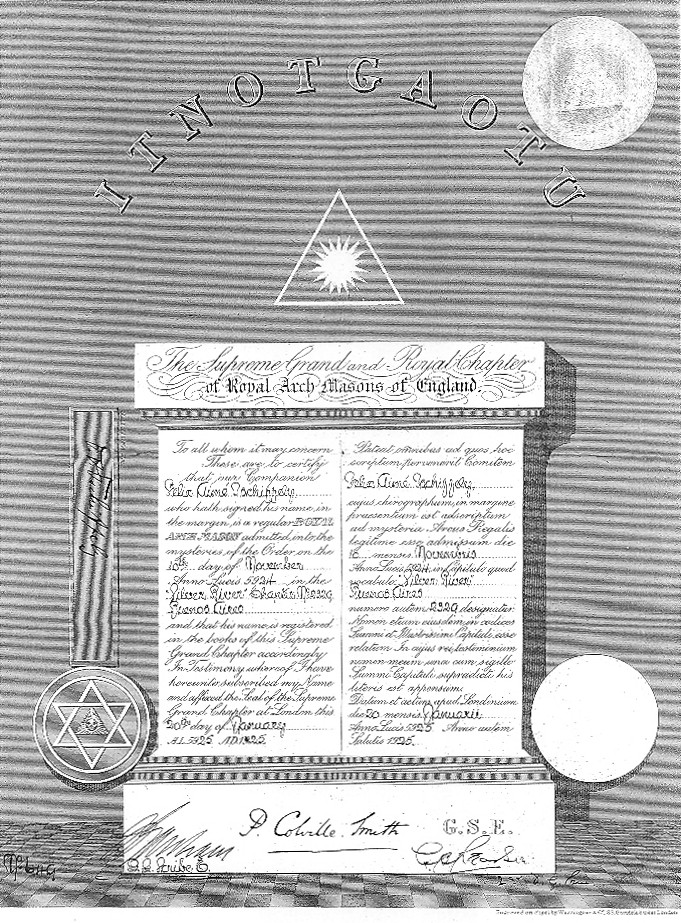 ITNOTGAOTU
The Supreme Grand and Royal Chapter
of Royal Arch Masons of England.
To all whom it may concern
These are to certify
that our Companion
Felix Aimé Tschiffely
who hath signed his name in
the margin, is a regular ROYAL
ARCH MASON admitted into the
mysteries of the Order on the
day of November
Anno Lucis 5924 in the
"Silver River" Chapter No 2329
Buenos Aires
and that his name is registered
in the books of this Supreme
Grand Chapter accordingly
In Testimony whereof I have
hereunto subscribed my Name
and affixed the Seal of the Supreme
Grand Chapter at London this
20th day of January
A.L. 5925 A.D. 1925
Pateat omnibus ad quos hoc
scriptum pervenerit Comitem
Felix Aimé Tschiffely
cujus chirographum in margine
praesentium est adscriptum
ad mysteria Arcus Regalis
legitime esse admissum die
mensis Novembris
Anno Lucis 5924 in Capitulo quod
vocabulo "Silver River"
Buenos Aires
numero autem 2329 designatur
Nomen etiam ejusdem in codices
Summi et Illustrissimi Capituli esse
relatum In cujus rei testimonium
nomen meum una cum sigillo
Summi Capituli supradicti his
literis est appensum
Datum et actum apud Londinium
die 20 mensis Januarii
Anno Lucis 5925 Anno autem
Salutis 1925.
P Colville Smith G.S.E.
Scribe E.